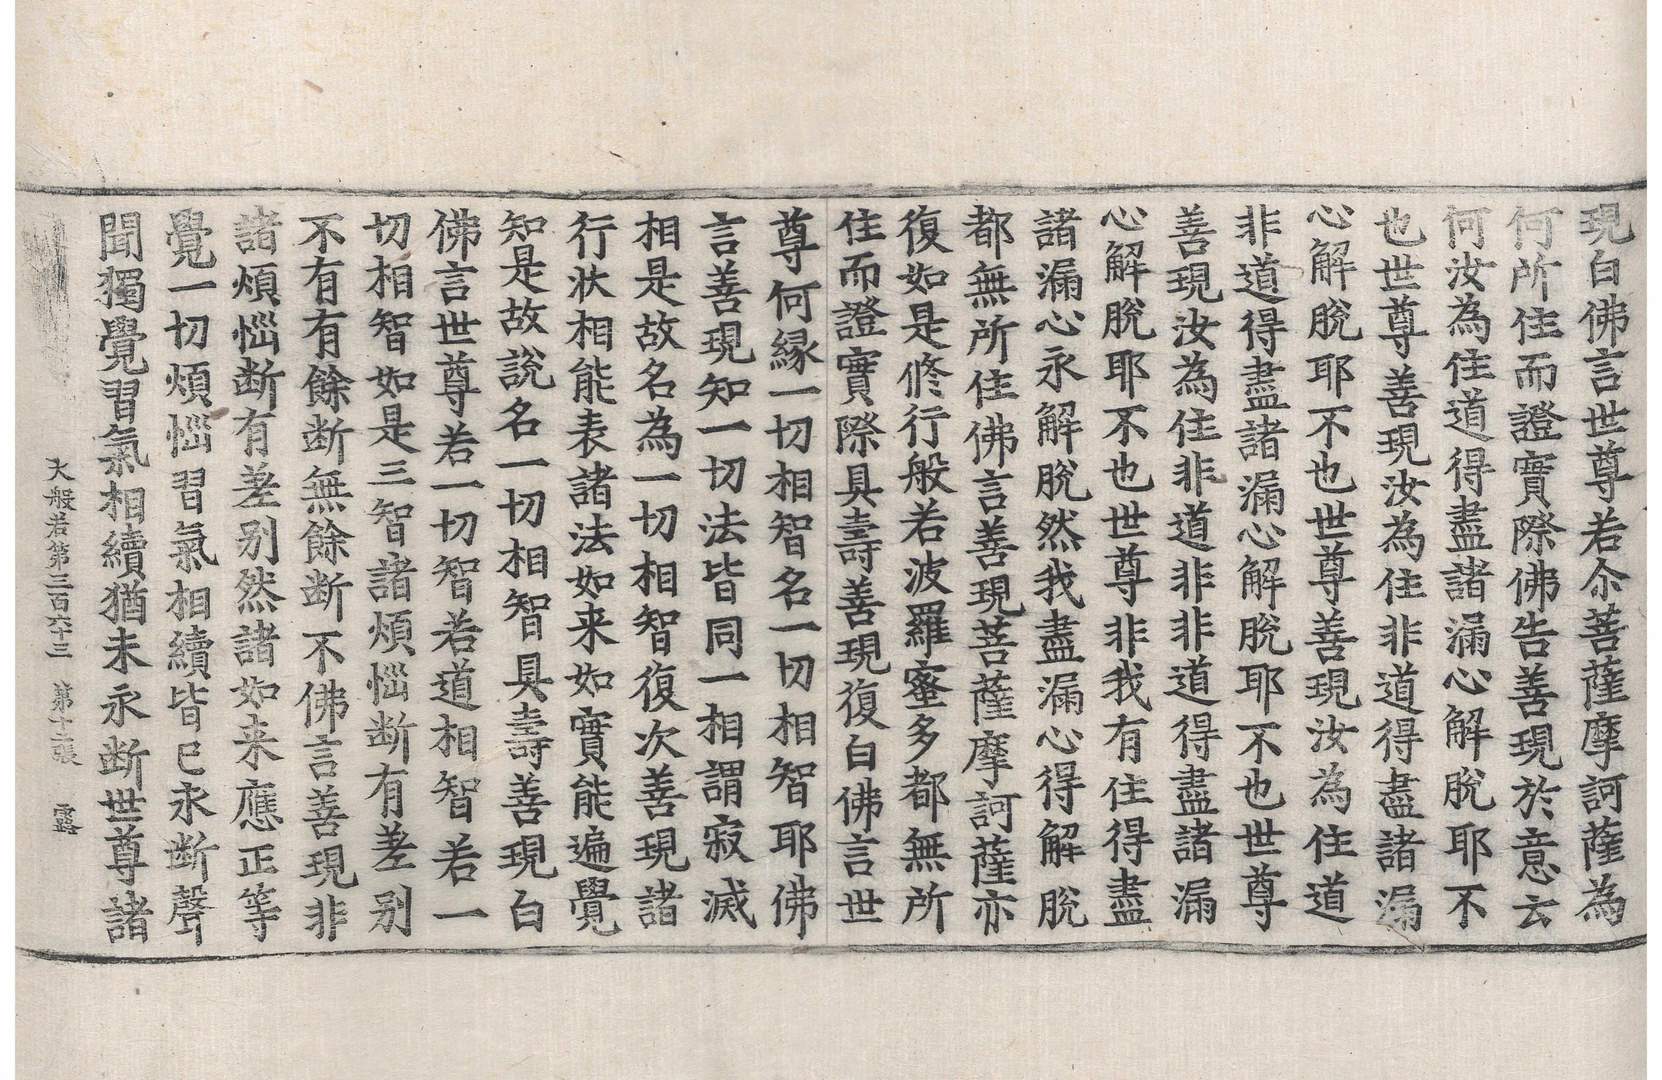 現白佛言世尊若尒菩薩摩訶薩為
何所住而證實際佛告善現於意云
何汝為住道得盡諸漏心解脫耶不
也世尊善現汝為住非道得盡諸漏
心解脫耶不也世尊善現汝為住道
非道得盡諸漏心解脫耶不也世尊
善現汝為住非道非非道得盡諸漏
心解脫耶不也世尊非我有住得盡
諸漏心永解脫然我盡漏心得解脫
都無所住佛言善現菩薩摩訶薩亦
復如是修行般若波羅蜜多都無所
住而證實際具壽善現復白佛言世
尊何緣一切相智名一切相智耶佛
言善現知一切法皆同一相謂寂滅
相是故名為一切相智復次善現諸
行狀相能表諸法如来如實能遍覺
知是故說名一切相智具壽善現白
佛言世尊若一切智若道相智若一
切相智如是三智諸煩惱断有差别
不有有餘断無餘断不佛言善現非
諸煩惱断有差别然諸如来應正等
覺一切煩惱習氣相續皆已永断聲
聞獨覺習氣相續猶未永断世尊諸
大般若第三百六十三 第十二張 露